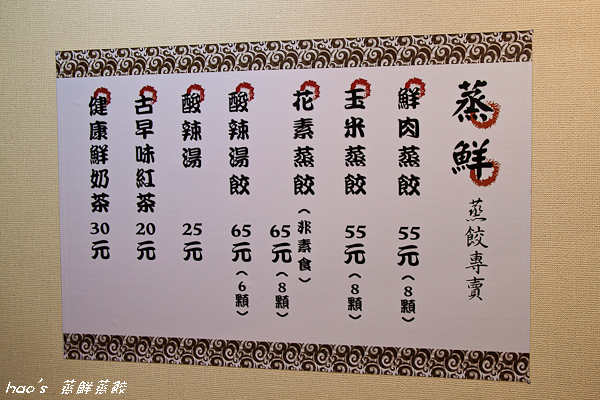 蒸鮮
蒸餃專賣
鮮肉蒸餃 55元(8顆)
玉米蒸餃 55元(8顆)
花素蒸餃(非素食)
65元(8顆)
酸辣湯餃 65元(6顆)
酸辣湯 25元
古早味紅茶 20元
健康鮮奶茶 30元
hao's 蒸鮮蒸餃